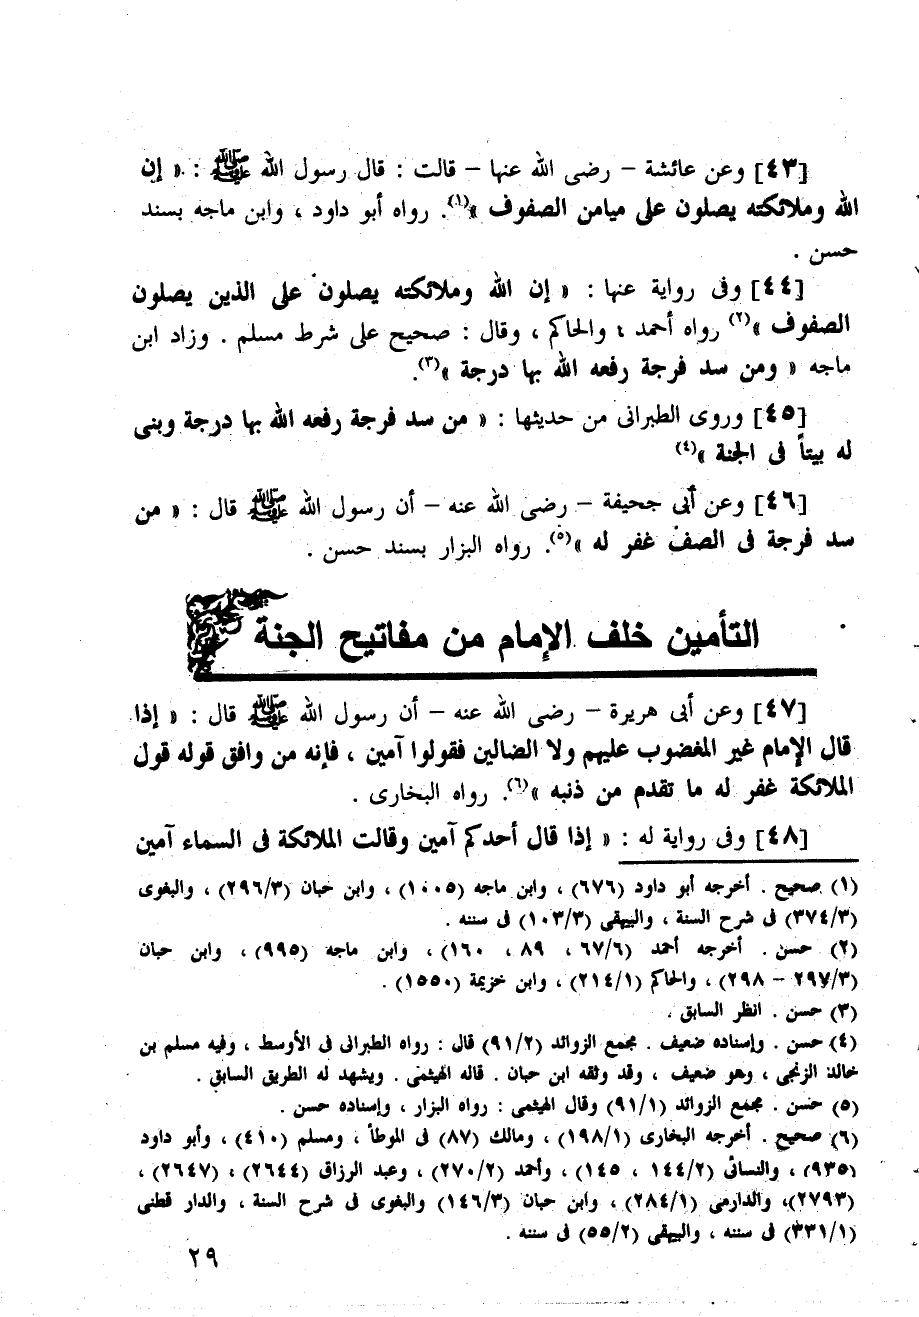 [٤٣] وعن عائشة – رضى الله عنها – قالت : قال رسول الله ﷺ : « إن
الله وملائكته يصلون على ميامن الصفوف »(١). رواه أبو داود ، وابن ماجه بسند
حسن .
[٤٤] وفى رواية عنها : « إن الله وملائكته يصلون على الذين يصلون
الصفوف »(٢) رواه أحمد ، والحاكم ، وقال : صحيح على شرط مسلم . وزاد ابن
ماجه « ومن سد فرجة رفعه الله بها درجة »(٣).
[٤٥] وروى الطبرانى من حديثها : « من سد فرجة رفعه الله بها درجة وبنى
له بيتاً فى الجنة »(٤)
[٤٦] وعن أبى جحيفة – رضى الله عنه – أن رسول الله ﷺ قال : « من
سد فرجة فى الصف غفر له »(٥). رواه البزار بسند حسن .
التأمين خلف الإمام من مفاتيح الجنة
[٤٧] وعن أبى هريرة – رضى الله عنه – أن رسول الله ﷺ قال : « إذا
قال الإمام غير المغضوب عليهم ولا الضالين فقولوا آمين ، فإنه من وافق قوله قول
الملائكة غفر له ما تقدم من ذنبه »(٦). رواه البخارى .
[٤٨] وفى رواية له : « إذا قال أحدكم آمين وقالت الملائكة فى السماء آمين
(١) صحيح . أخرجه أبو داود (٦٧٦) ، وابن ماجه (١٠٠٥) ، وابن حبان (٢٩٦/٣) ، والبغوى
(٣٧٤/٣) فى شرح السنة ، والبيهقى (١٠٣/٣) فى سننه .
(٢) حسن . أخرجه أحمد (٦٧/٦ ، ٨٩ ، ١٦٠) ، وابن ماجه (٩٩٥) ، وابن حبان
(٢٩٧/٣ – ٢٩٨) ، والحاكم (٢١٤/١) ، وابن خزيمة (١٥٥٠) .
(٣) حسن . انظر السابق .
(٤) حسن . وإسناده ضعيف . مجمع الزوائد (٩١/٢) قال : رواه الطبرانى فى الأوسط ، وفيه مسلم بن
خالد الزنجى ، وهو ضعيف ، وقد وثقه ابن حبان . قاله الهيثمى . ويشهد له الطريق السابق .
(٥) حسن . مجمع الزوائد (٩١/١) وقال الهيثمى : رواه البزار ، وإسناده حسن .
(٦) صحيح . أخرجه البخارى (١٩٨/١) ، ومالك (٨٧) فى الموطأ ، ومسلم (٤١٠) ، وأبو داود
(٩٣٥) ، والنسائى (١٤٤/٢ ، ١٤٥) ، وأحمد (٢٧٠/٢) ، وعبد الرزاق (٢٦٤٤) ، (٢٦٤٧) ،
(٢٧٩٣)، والدارمى (٢٨٤/١) ، وابن حبان (١٤٦/٣) والبغوى فى شرح السنة ، والدار قطنى
(٣٣١/١) فى سننه ، والبيهقى (٥٥/٢) فى سننه .
٢٩